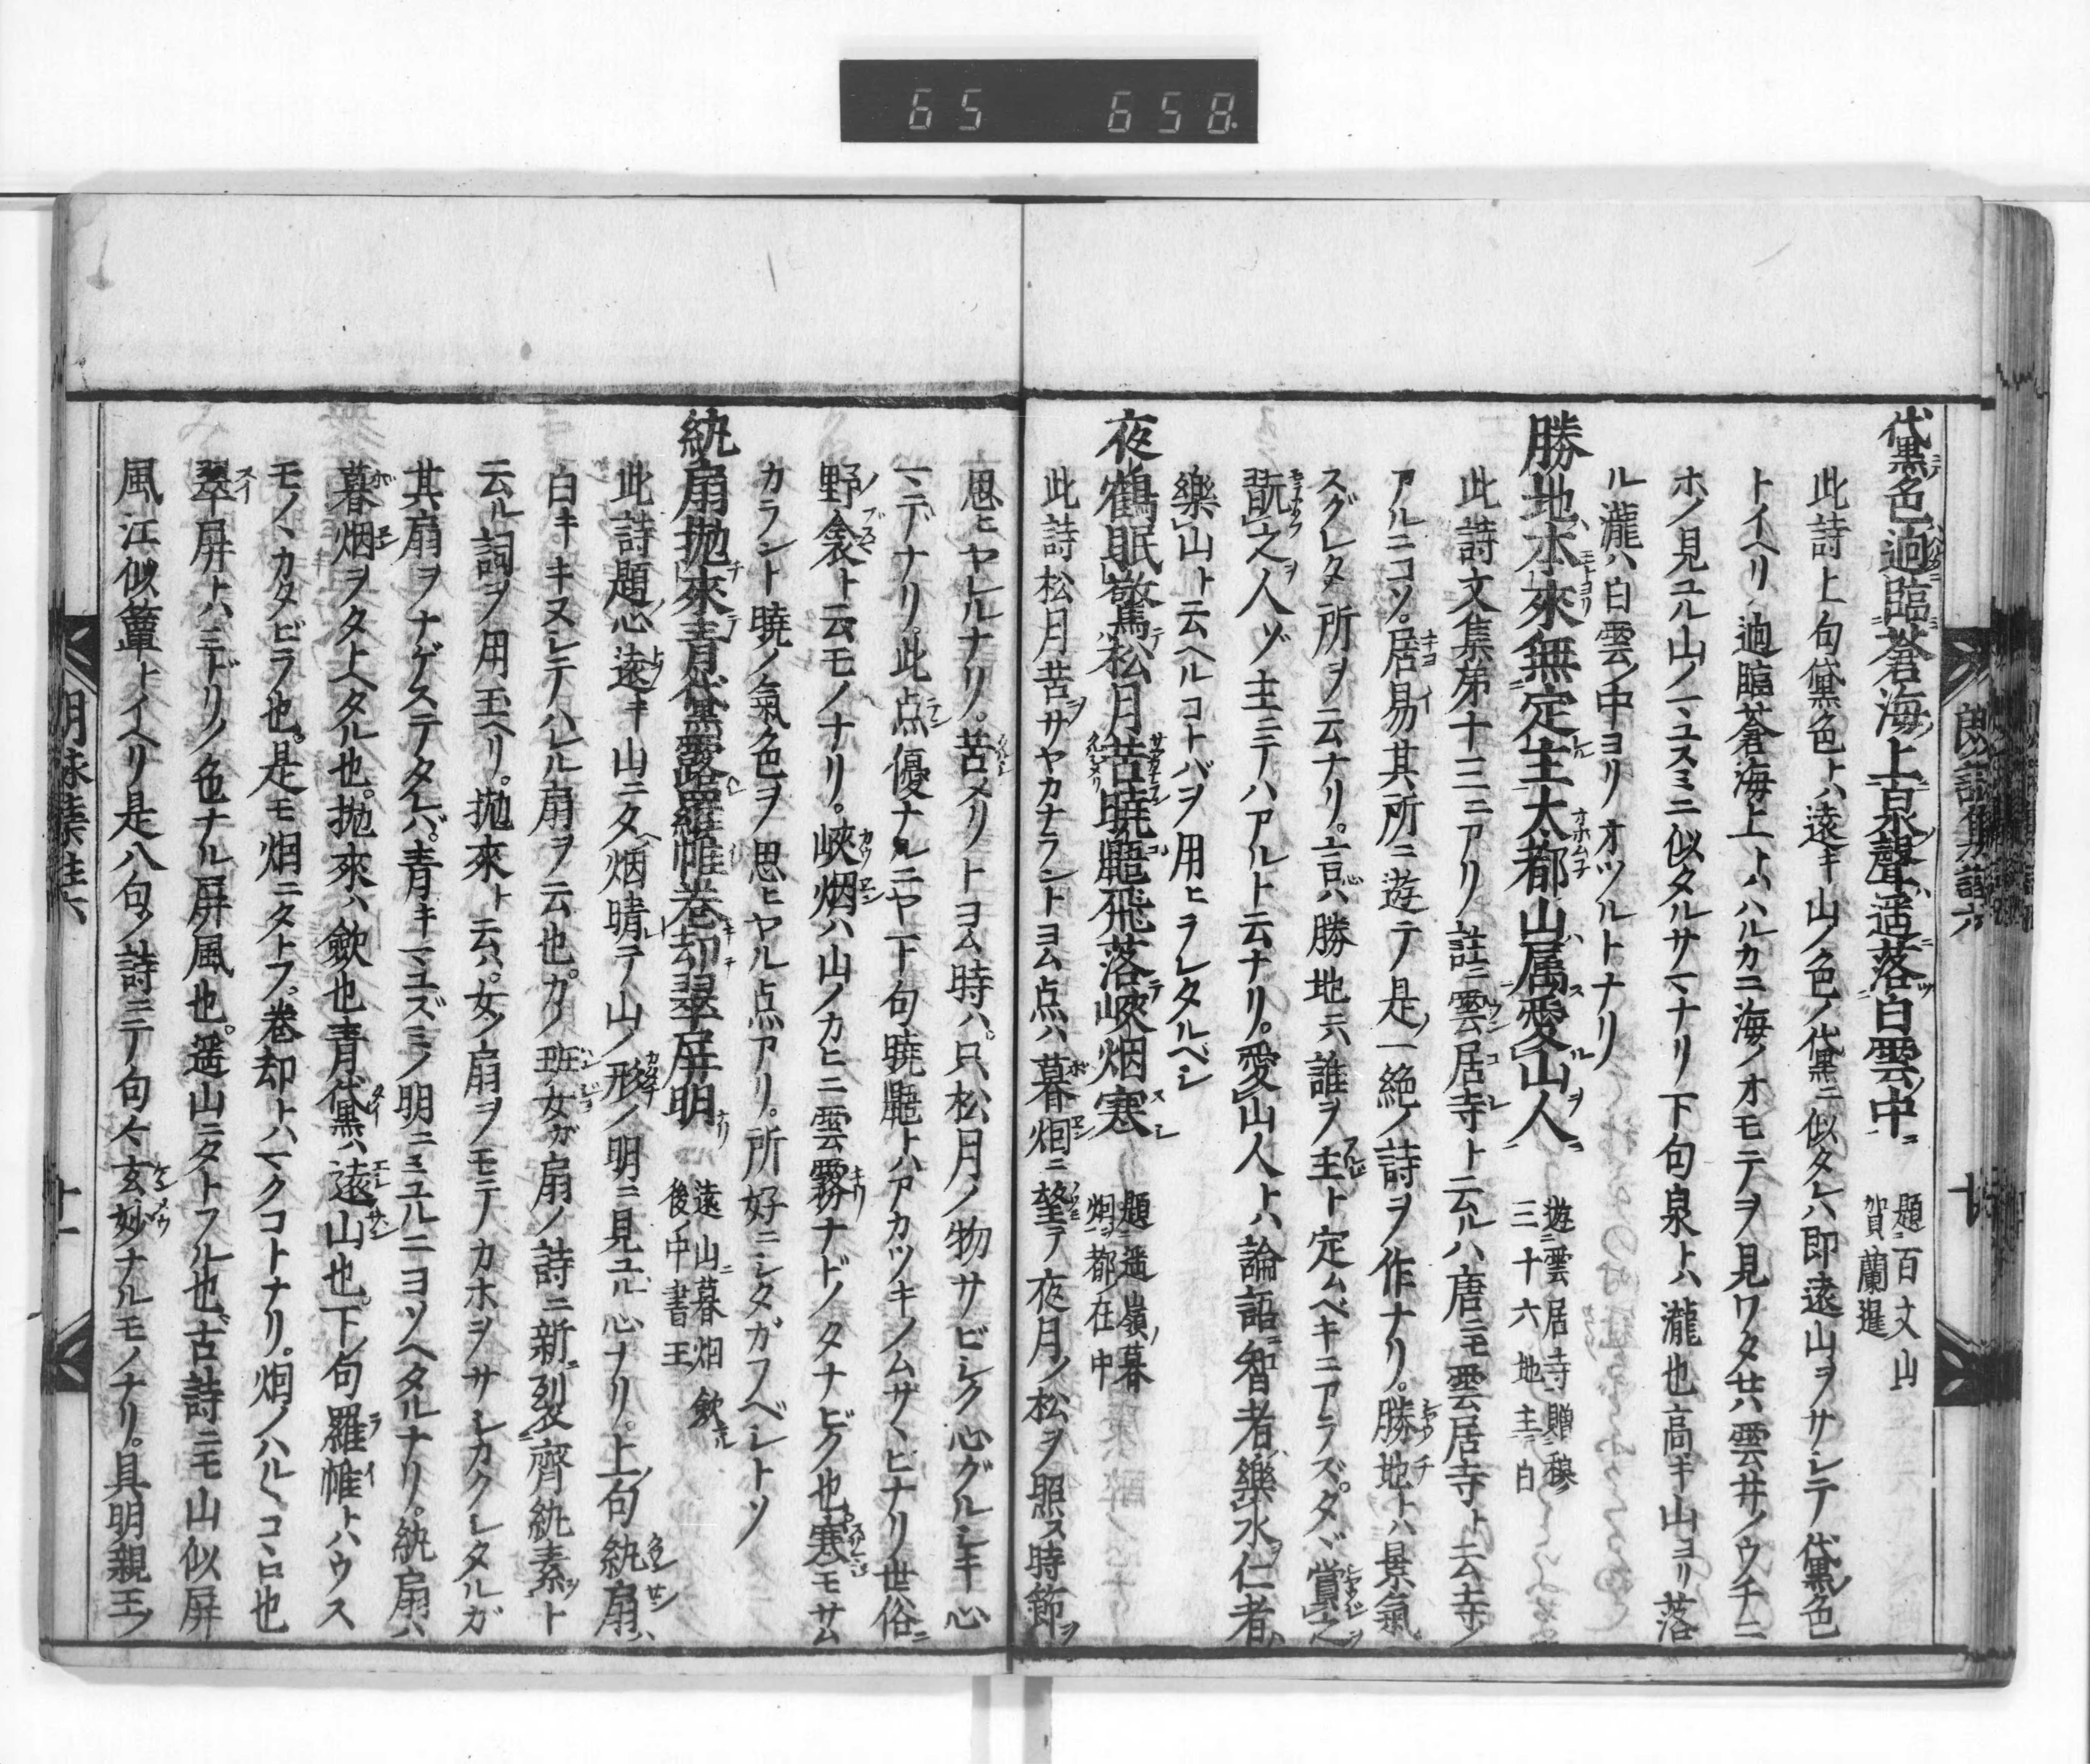 65 658
黛色迥臨蒼海上泉聲遥落白雲中 題百丈山 賀蘭暹
此詩上句黛色トハ遠キ山ノ色ノ黛ニ似タレハ即遠山ヲサシテ黛色
トイヘリ迥臨蒼海上トハハルカニ海ノオモテヲ見ワタせハ雲井ノウチニ
ホノ見ユル山ノマユスミニ似タルサマナリ下句泉トハ瀧也高キ山ヨリ落
ル瀧ハ白雲ノ中ヨリオツルトナリ
勝地本來無定主大都山属愛山人 遊雲居寺贈穆 三十六地主 白
此詩文集第十三ニアリ註ニ雲居寺ト云ルハ唐ニモ雲居寺ト云寺ノ
アルニコソ。居易其所ニ遊テ是ノ一絶ノ詩ヲ作ナリ。勝地トハ景氣
スグレタ所ヲ云ナリ。言ハ勝地ニハ誰ヲ主ト定ムベキニアラズ。タヾ賞之
翫之人ゾ主ニテハアルト云ナリ。愛山人トハ論語ニ智者樂水仁者
樂山ト云ヘルコトバヲ用ヒラレタルベシ
夜鶴眠驚松月苦暁鼯飛落峽烟寒 題遥嶺暮烟 都在中
此詩松月苦サヤカナラントヨム点ハ暮烟ニ望テ夜月ノ松ヲ照ス時節ヲ
思ヒヤレルナリ。苦メリトヨム時ハ。只松月ノ物サビシク心グルシキ心
マデナリ。此点優ナルニヤ下句暁鼯トハアカツキノムサヽビナリ世俗ニ
野衾ト云モノナリ。峽烟ハ山ノカヒニ雲霧ナドノタナビク也寒モサム
カラント暁ノ氣色ヲ思ヒヤル点アリ。所好ニシタガフベシトゾ
紈扇抛來青黛露羅帷卷却翠屏明 遠山暮烟歛 後中書王
此詩題心遠キ山ニタ烟晴テ山ノ形ノ明ニ見ユル心ナリ。上句紈扇ハ
白キ。キヌシテハレル扇ヲ云也。カノ班女ガ扇ノ詩ニ新裂齊紈素ト
云ル詞ヲ用玉ヘリ。抛來ト云ハ。女ノ扇ヲモテカホヲサシカクシタルガ
其扇ヲナゲステタレバ。青キマユズミノ明ニミユルニヨソヘタルナリ。紈扇ハ
暮烟ヲタトヘタル也。抛來ハ歛也青黛ハ遠山也。下ノ句羅帷トハウス
モノヽカタビラ也。是モ烟ニタトフ。卷却トハマクコトナリ。烟ノハルヽコヽロ也
翠屏トハミドリノ色ナル屏風也。遥山ニタトフル也。古詩ニモ山似屏
風江似簟トイヘリ是八句ノ詩ニテノ句々玄妙ナルモノナリ。具明親王ノ